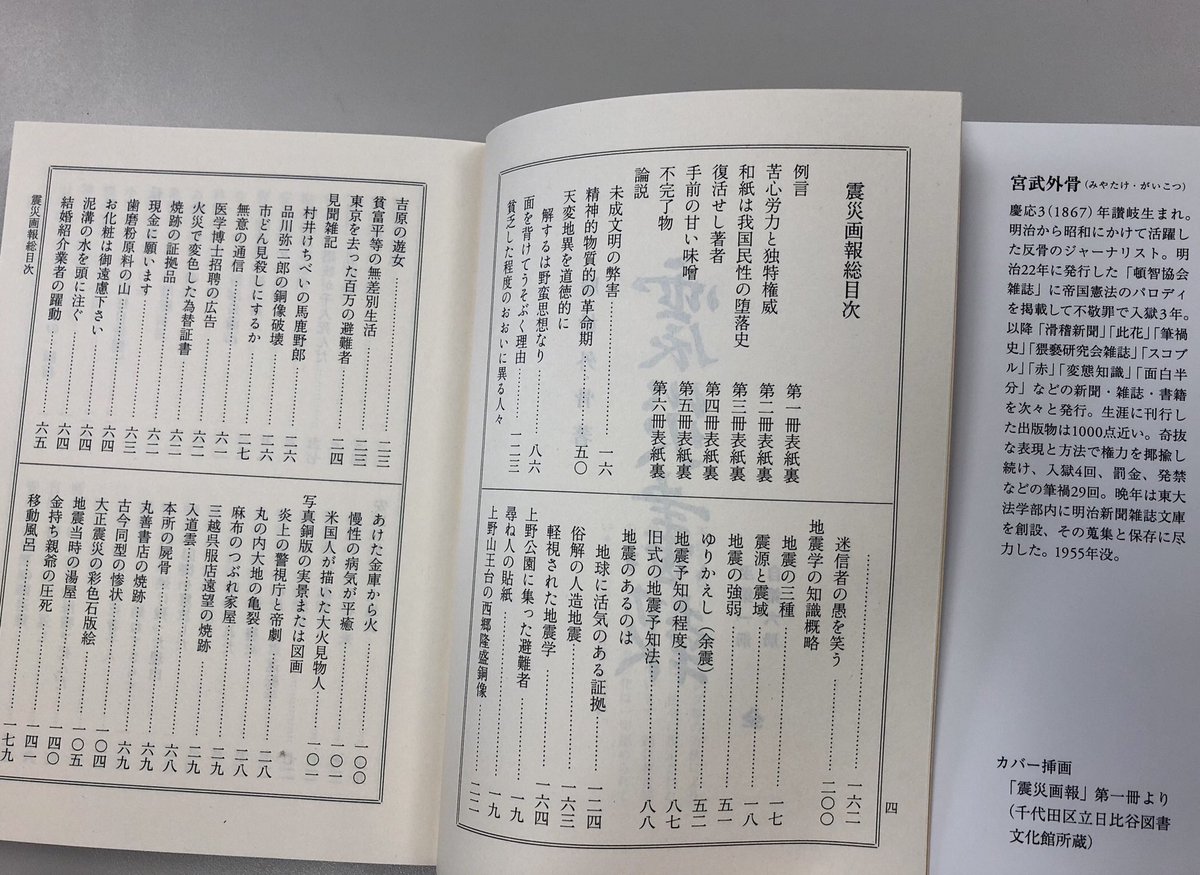 宮武外骨(みやたけ・がいこつ)
慶応3(1867)年讃岐生まれ。
明治から昭和にかけて活躍し
た反骨のジャーナリスト。明
治22年に発行した「頓智協会
雑誌」に帝国憲法のパロディ
を掲載して不敬罪で入獄3年。
以降「滑稽新聞」「此花」「筆禍
史」「猥褻研究会雑誌」「スコブ
ル」「赤」「変態知識」「面白半
分」などの新聞・雑誌・書籍
を次々と発行。生涯に刊行し
た出版物は1000点近い。奇抜
な表現と方法で権力を揶揄し
続け、入獄4回、罰金、発禁
などの筆禍29回。晩年は東大
法学部内に明治新聞雑誌文庫
を創設、その蒐集と保存に尽
力した。1955年没。
カバー挿画
「震災画報」第一冊より
(千代田区立日比谷図書
文化館所蔵)
四
震災画報総目次
例言 第一冊表紙裏
苦心労力と独特権威 第二冊表紙裏
和紙は我国民性の堕落史 第三冊表紙裏
復活せし著者 第四冊表紙裏
手前の甘い味噌 第五冊表紙裏
不完了物 第六冊表紙裏
論説
未成文明の弊害……一六
精神的物質的の革命期……五〇
天変地異を道徳的に
解するは野蛮思想なり……八六
面を背けてうそぶく理由……一二三
貧乏した程度のおおいに異る人々
……一六二
迷信者の愚を笑う……二〇〇
地震学の知識概略
地震の三種……一七
震源と震域……一八
地震の強弱……五一
ゆりかえし(余震)……五二
地震予知の程度……八七
旧式の地震予知法……八八
地震のあるのは
地球に活気のある証拠……一二四
俗解の人造地震……一六三
軽視された地震学……一六四
上野公園に集った避難者……一九
尋ね人の貼紙……一九
上野山王台の西郷隆盛銅像……二二
吉原の遊女……二三
貧富平等の無差別生活……二三
東京を去った百万の避難者……二四
見聞雑記
村井けちべいの馬鹿野郎……二六
品川弥二郎の銅像破壊……二六
市どん見殺しにするか……二七
無意の通信……六一
医学博士招聘の広告……六二
火災で変色した為替証書……六二
焼跡の証拠品……六二
現金に願います……六三
歯磨粉原料の山……六四
お化粧は御遠慮下さい……六四
泥溝の水を頭に注ぐ……六四
結婚紹介業者の躍動……六五
あけた金庫から火……一〇〇
慢性の病気が平癒……一〇一
米国人が描いた大火見物人……一〇一
写真銅版の実景または図画
炎上の警視庁と帝劇……二八
丸の内大地の亀裂……二八
麻布のつぶれ家屋……二九
三越呉服店遠望の焼跡……二九
入道雲……六八
本所の屍骨……六九
丸善書店の焼跡……六九
古今同型の惨状……一〇四
大正震災の彩色石版絵……一〇五
地震当時の湯屋……一四〇
金持ち親爺の圧死……一四一
移動風呂……一七九
震災画報総目次